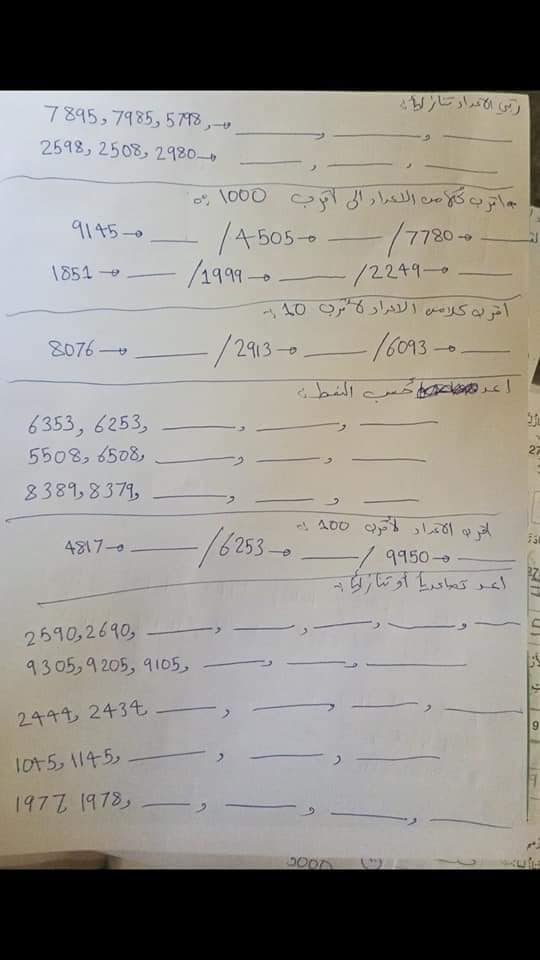 رتبي الاعداد تنازلياً:
7895, 7985, 5798, → ____, ____, ____
2598, 2508, 2980 → ____, ____, ____
* اقرب كلاً من الاعداد الى أقرب 1000 :
9145 → ____ / 4505 → ____ / 7780 → ____
1851 → ____ / 1999 → ____ / 2249 → ____
أقرب كلا من الاعداد لأقرب 10 :
8076 → ____ / 2913 → ____ / 6093 → ____
اعد حسب النمط :
6353, 6253, ____, ____, ____
5508, 6508, ____, ____, ____
8389, 8379, ____, ____, ____
اقرب الاعداد لأقرب 100 :
4817 → ____ / 6253 → ____ / 9950 → ____
اعد تصاعدياً أو تنازلياً :
2590, 2690, ____, ____, ____, ____, ____
9305, 9205, 9105, ____, ____, ____
2444, 2434, ____, ____, ____, ____
1045, 1145, ____, ____, ____
1977, 1978, ____, ____, ____, ____